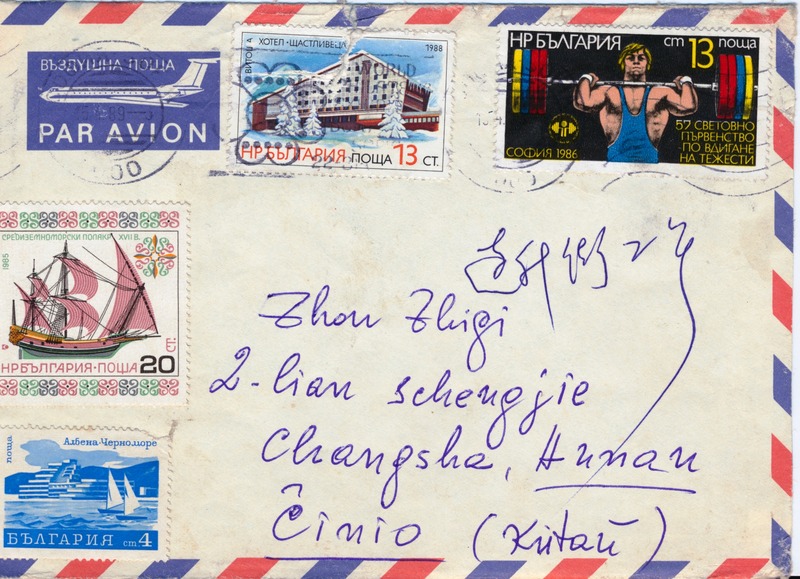 ВЪЗДУШНА ПОЩА
PAR AVION
ХОТЕЛ "ЩАСТЛИВЕЦА
1988
ВИТОША
НР БЪЛГАРИЯ ПОЩА 13 СТ.
НР БЪЛГАРИЯ ст 13 поща
57 СВЕТОВНО
ПЪРВЕНСТВО
ПО ВДИГАНЕ
НА ТЕЖЕСТИ
СОФИЯ 1986
СРЕДИЗЕМНОМОРСКИ ПОЛАКР XVII В.
1985
20 СТ.
НР БЪЛГАРИЯ·ПОЩА
поща
Албена-Черноморе
БЪЛГАРИЯ ст 4
Zhou Zhigi
2-lian schengjie
Changsha, Hunan
Ĉinio (Китай)